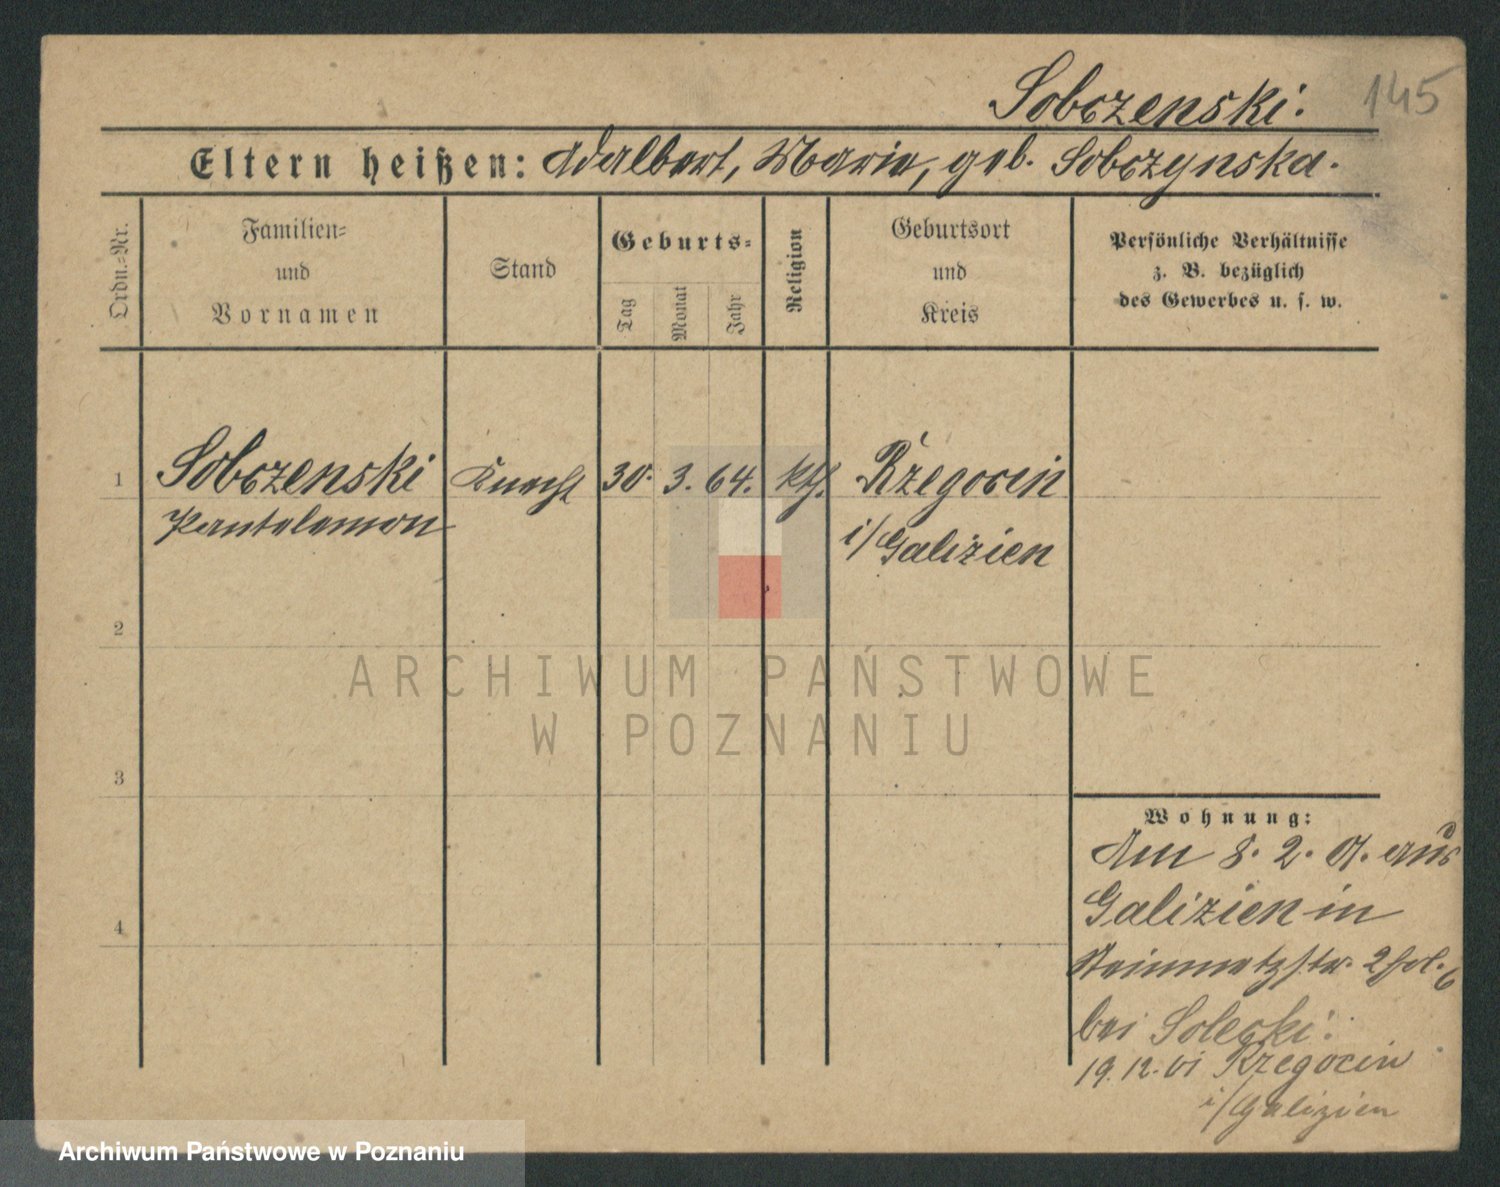 145
Sobczenski.
Eltern heißen: Adalbert, Maria, geb. Sobczynska.
Ordn.-Nr.
Familien-
und
Vornamen
Stand
Geburts-
Tag
Monat
Jahr
Religion
Geburtsort
und
Kreis
Persönliche Verhältnisse
z. B. bezüglich
des Gewerbes u. s. w.
1 Sobczenski Knecht 30. 3. 64. kth. Rzegocin
Pantalemon i/Galizien
2
3
4
Wohnung:
Am 8. 2. 01. aus
Galizien in
Steinmetzstr. 2
bei Solecki.
19.12.01 Rzegocin
i/Galizien
ARCHIWUM PAŃSTWOWE
W POZNANIU
Archiwum Państwowe w Poznaniu